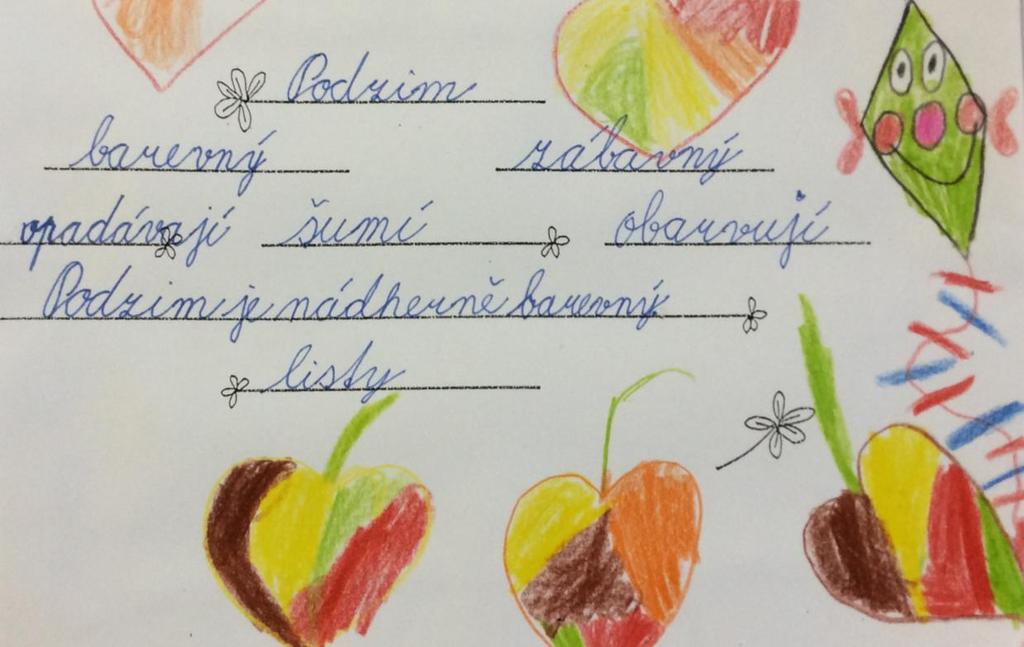 Podzim
barevný zábavný
opadávají šumí obarvují
Podzim je nádherně barevný.
listy